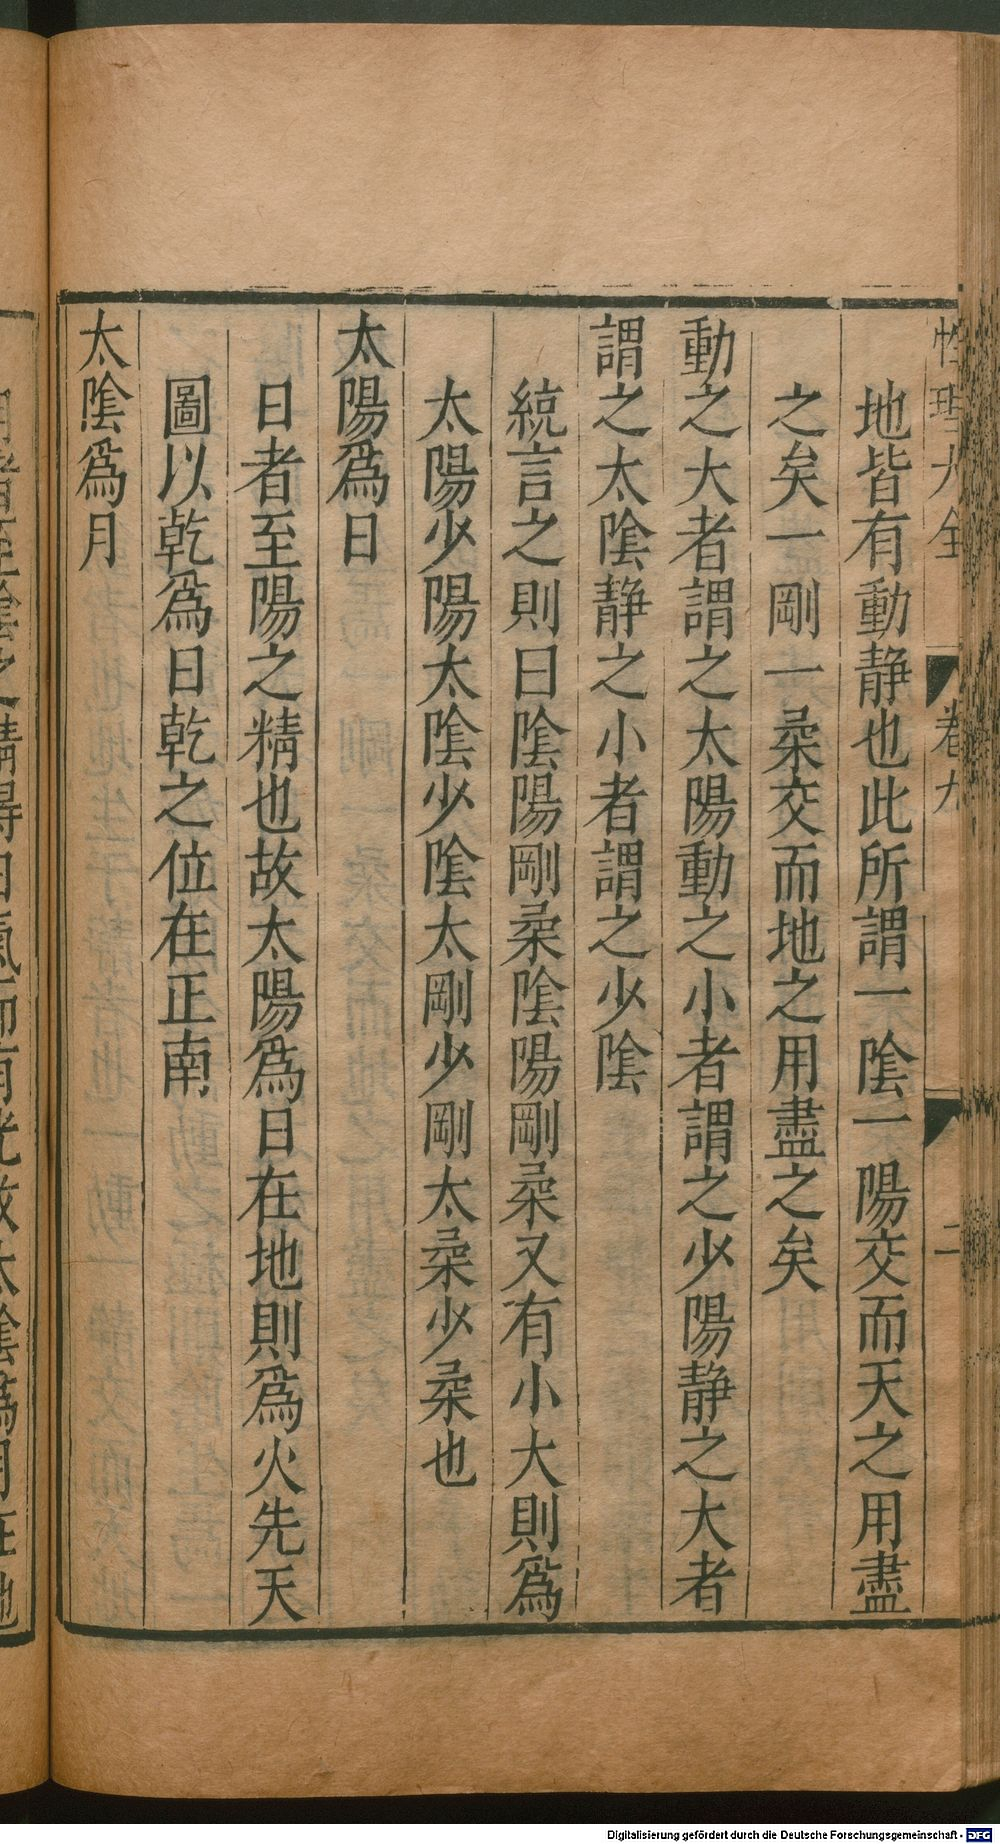 性理大全 卷九 二
地皆有動靜也此所謂一陰一陽交而天之用盡
之矣一剛一柔交而地之用盡之矣
動之大者謂之太陽動之小者謂之少陽靜之大者
謂之太陰靜之小者謂之少陰
統言之則曰陰陽剛柔陰陽剛柔又有小大則爲
太陽少陽太陰少陰太剛少剛太柔少柔也
太陽爲日
日者至陽之精也故太陽爲日在地則爲火先天
圖以乾爲日乾之位在正南
太陰爲月
月者至陰之精得日氣而有光故太陰爲月在地
Digitalisierung gefördert durch die Deutsche Forschungsgemeinschaft - DFG